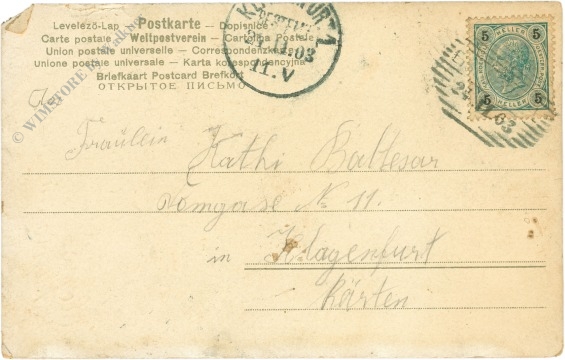 Levelező-Lap — Postkarte — Dopisnice
Carte postale — Weltpostverein — Cartolina Postale
Union postale universelle — Correspondenzkarte
Unione postale universale — Karta korespondencyjna
Briefkaart Postcard Brefkort
ОТКРЫТОЕ ПИСЬМО
© WIMSTORE
BESTELLT
03
11.V
5 HELLER 5
5 HELLER 5
03
Fräulein Kathi Baltesar
Domgasse № 11.
in Klagenfurt
Kärten